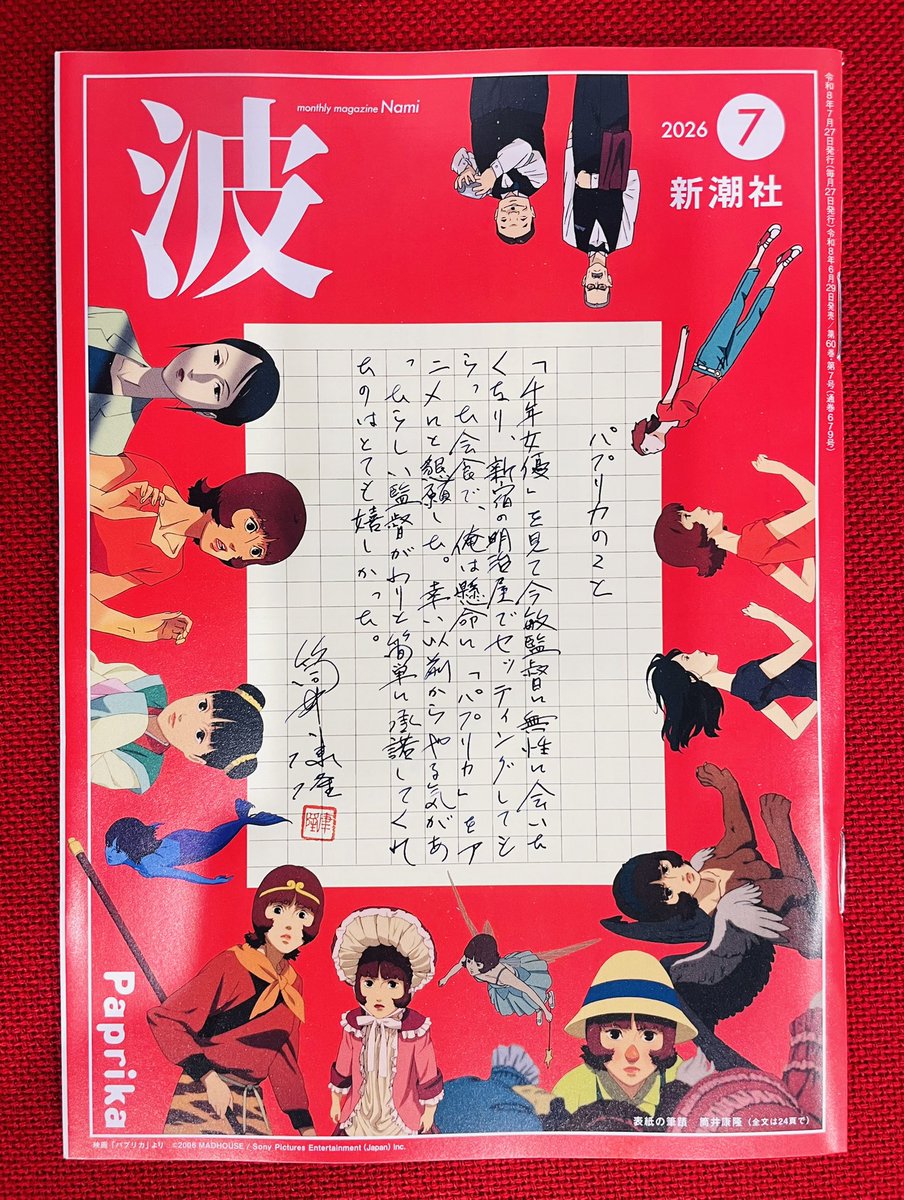 波
monthly magazine Nami
2026 7
新潮社
令和8年7月27日発行(毎月27日発行)令和8年6月29日発売/第60巻・第7号(通巻679号)
パプリカのこと
「千年女優」を見て今敏監督に無性に会いた
くなり、新宿の明治屋でセッティングしても
らった会食で、俺は懸命に「パプリカ」をア
ニメにと懇願した。幸い以前からやる気があ
ったらしい監督がわりと簡単に承諾してくれ
たのはとても嬉しかった。
筒井康隆
Paprika
表紙の筆蹟 筒井康隆(全文は24頁で)
映画「パプリカ」より ©2006 MADHOUSE / Sony Pictures Entertainment (Japan) Inc.